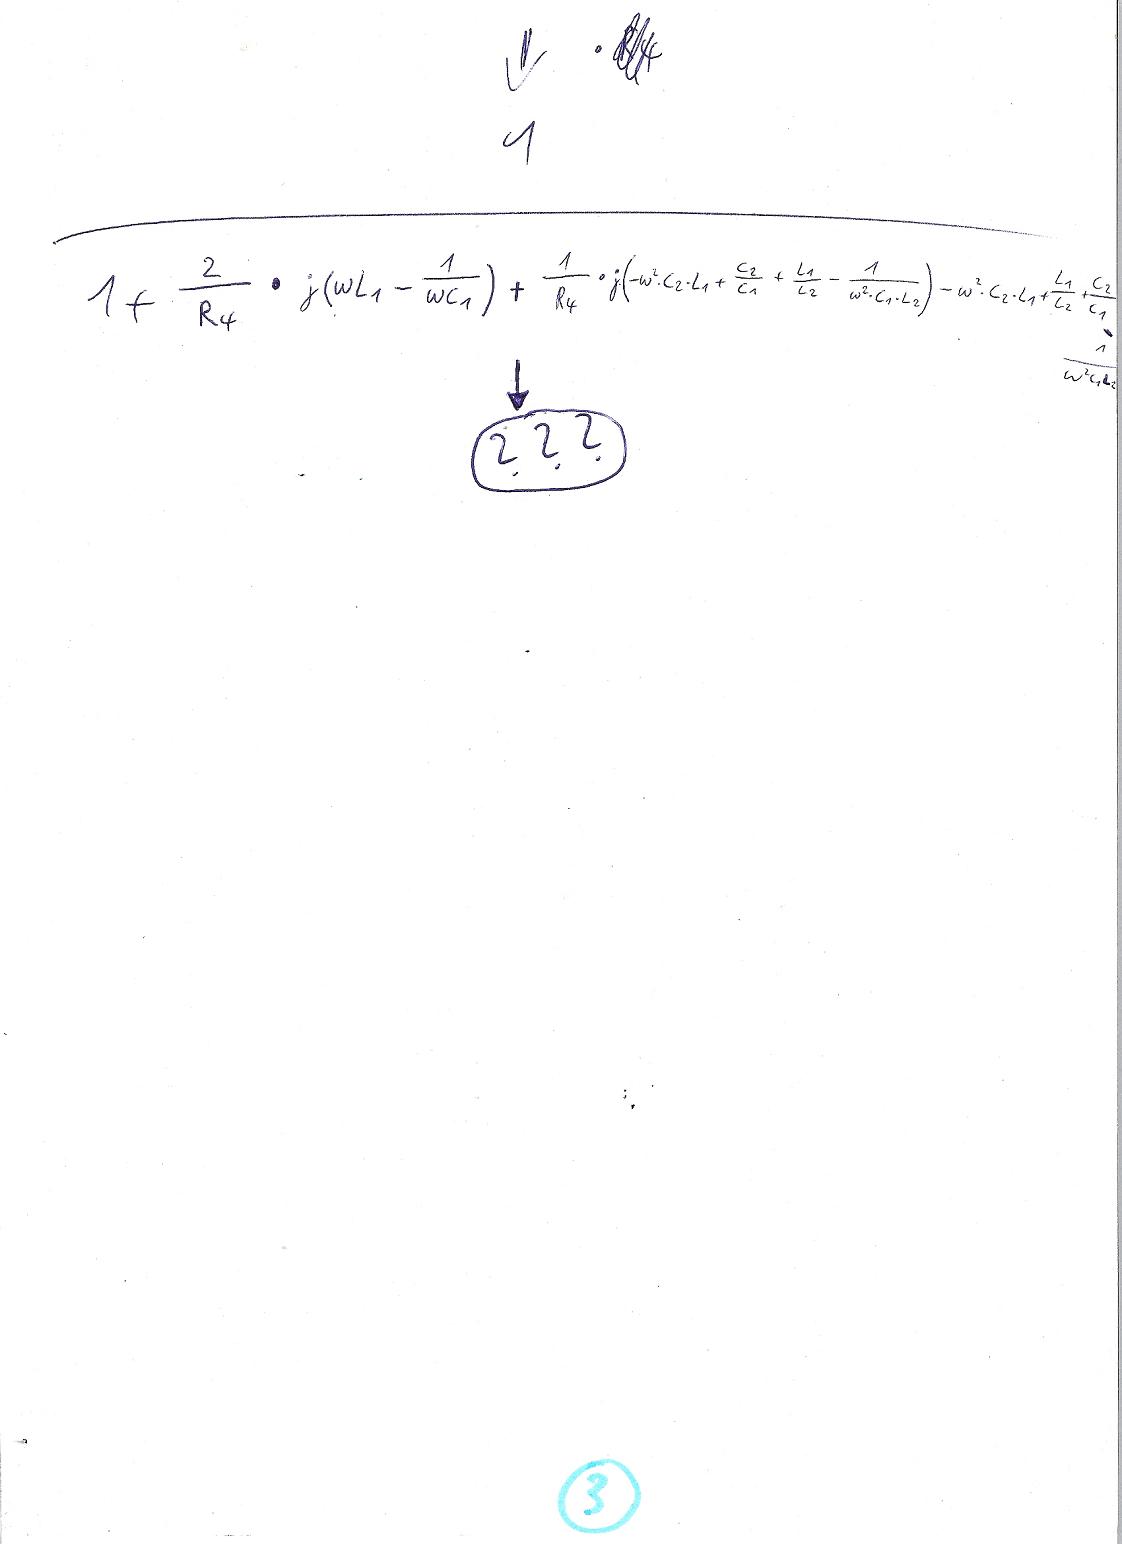 1
1 + 2/R4 · j(ωL1 − 1/ωC1) + 1/R4 · j(−ω²·C2·L1 + C2/C1 + L1/L2 − 1/ω²·C1·L2) − ω²·C2·L1 + L1/L2 + C2/C1
− 1/ω²C1L2
???
3